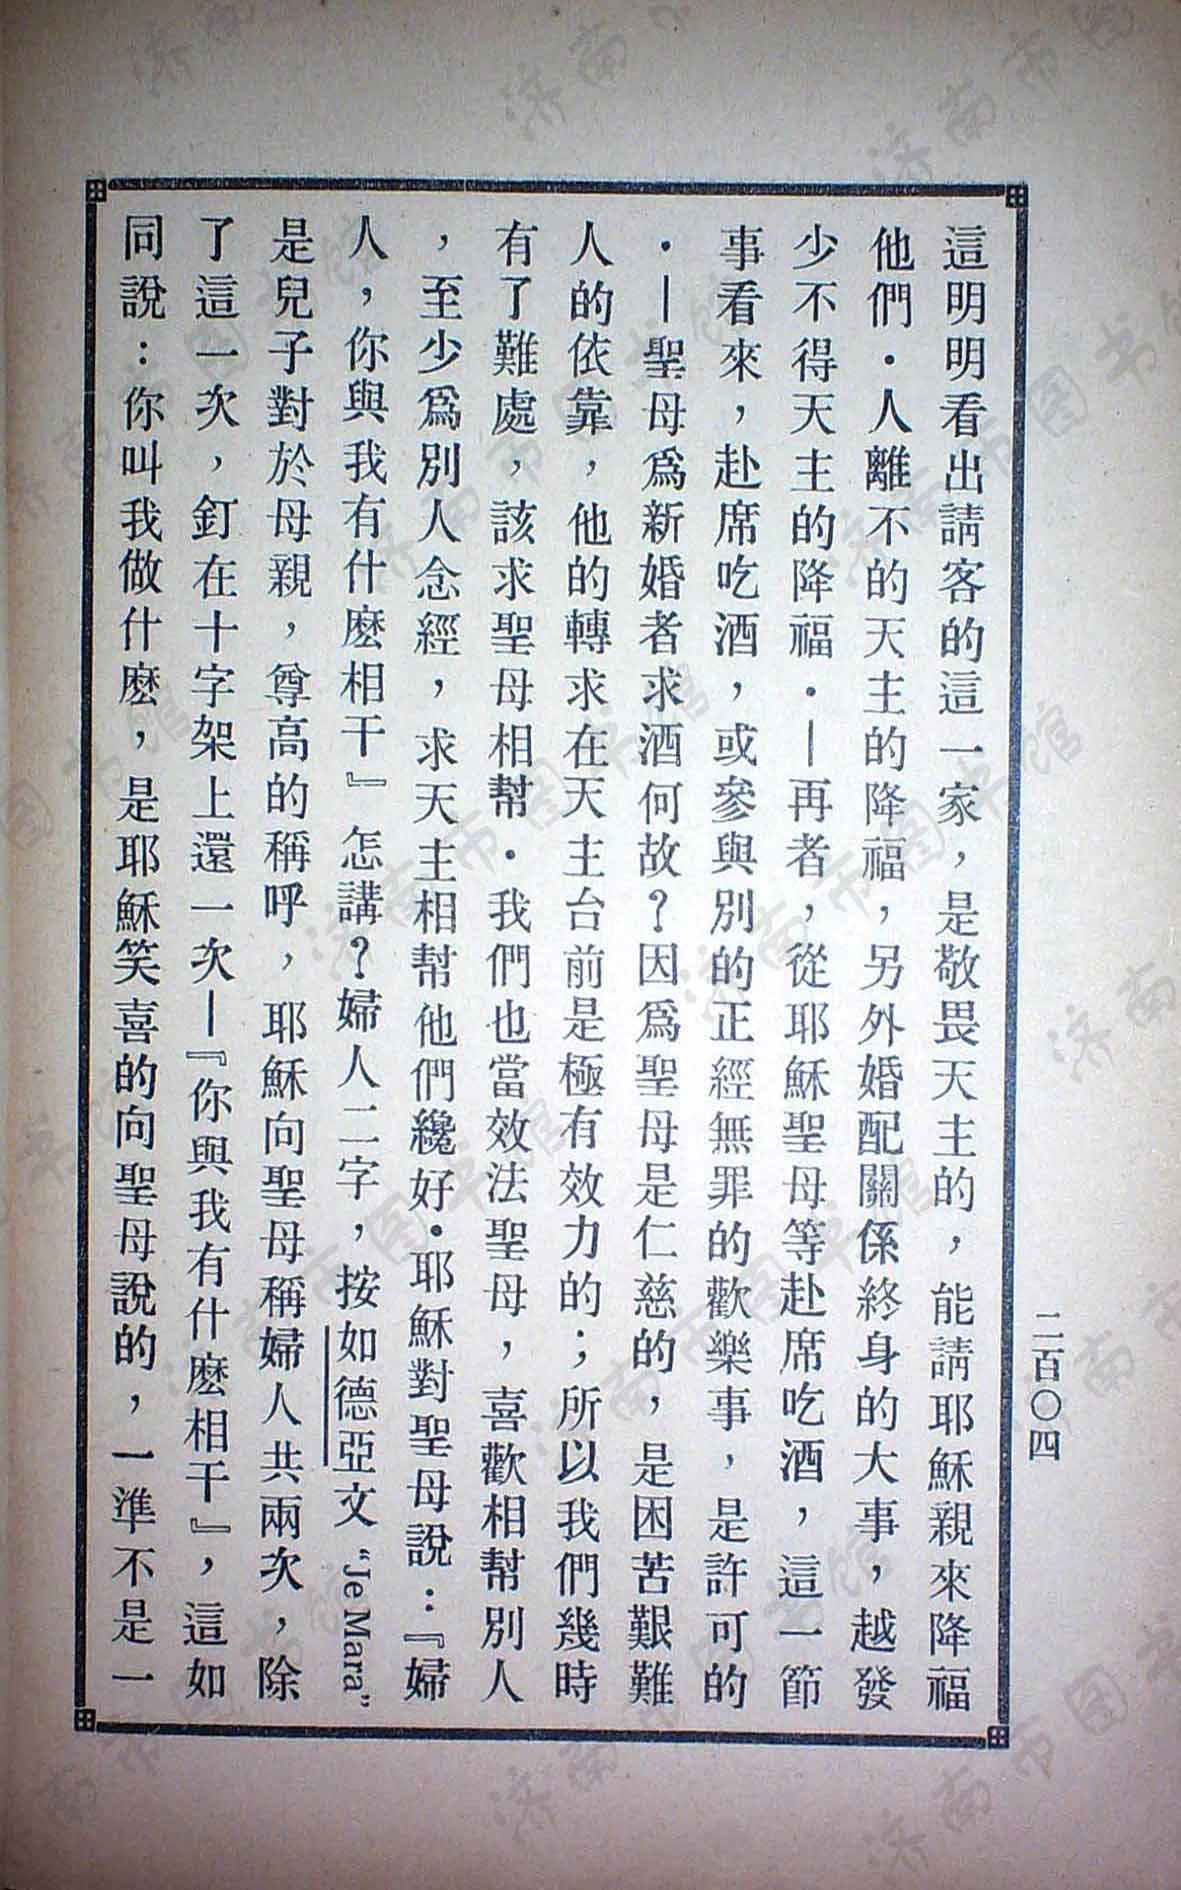 二百〇四
這明明看出請客的這一家，是敬畏天主的，能請耶穌親來降福
他們．人離不的天主的降福，另外婚配關係終身的大事，越發
少不得天主的降福．—再者，從耶穌聖母等赴席吃酒，這一節
事看來，赴席吃酒，或參與別的正經無罪的歡樂事，是許可的
．—聖母爲新婚者求酒何故？因爲聖母是仁慈的，是困苦艱難
人的依靠，他的轉求在天主台前是極有效力的；所以我們幾時
有了難處，該求聖母相幫．我們也當效法聖母，喜歡相幫別人
，至少爲別人念經，求天主相幫他們纔好．耶穌對聖母說：『婦
人，你與我有什麽相干』怎講？婦人二字，按如德亞文“Je Mara”
是兒子對於母親，尊高的稱呼，耶穌向聖母稱婦人共兩次，除
了這一次，釘在十字架上還一次—『你與我有什麽相干』，這如
同說：你叫我做什麽，是耶穌笑喜的向聖母說的，一準不是一
济南市图书馆